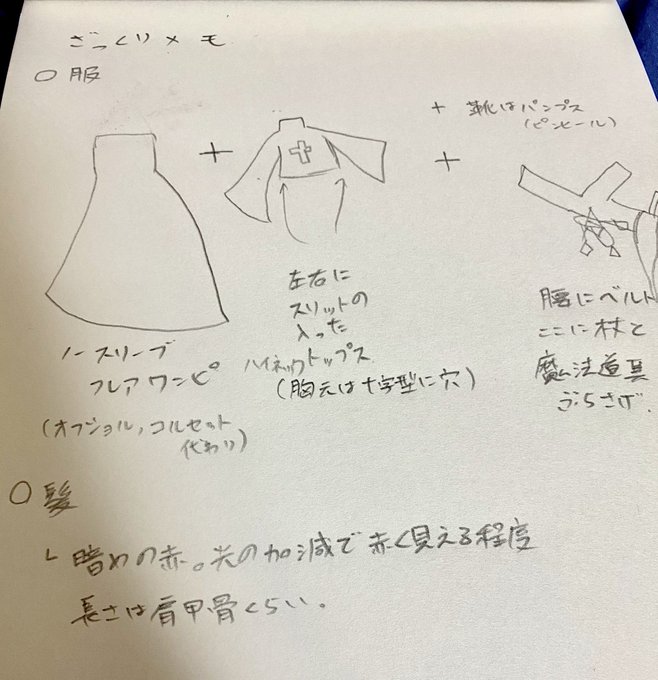 ざっくりメモ
○ 服
+ 靴はパンプス
(ピンヒール)
+
+
ノースリーブ
フレアワンピ
(オフショル,コルセット
代わり)
左右に
スリットの
入った
ハイネックトップス
(胸元は十字型に穴)
腰にベルト
ここに杖と
魔法道具
ぶらさげ.
○ 髪
└ 暗めの赤。光の加減で赤く見える程度
長さは肩甲骨くらい.